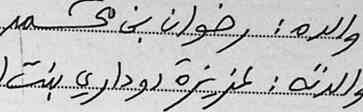 والده : رضوان بن محمد
والدته : عزيزة دوداري بنت